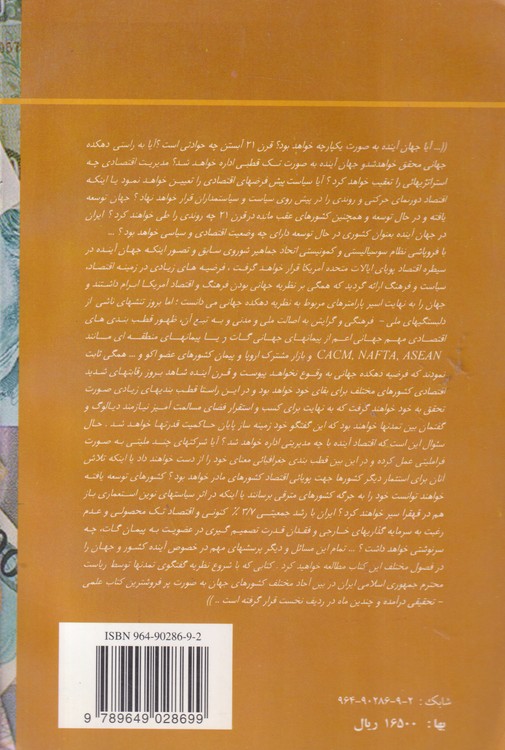 ((... آیا جهان آینده به صورت یکپارچه خواهد بود؟ قرن ۲۱ آبستن چه حوادثی است؟ آیا به راستی دهکده
جهانی محقق خواهدشدو جهان آینده به صورت تک قطبی اداره خواهد شد؟ مدیریت اقتصادی چه
استراتژیهائی را تعقیب خواهد کرد؟ آیا سیاست پیش فرضهای اقتصادی را تعیین خواهد نمود یا اینکه
اقتصاد دورنمای حرکتی و روندی را در پیش روی سیاست و سیاستمداران قرار خواهد نهاد؟ جهان توسعه
یافته و در حال توسعه و همچنین کشورهای عقب مانده درقرن ۲۱ چه روندی را طی خواهند کرد؟ ایران
در جهان آینده بعنوان کشوری در حال توسعه دارای چه وضعیت اقتصادی و سیاسی خواهد بود؟ ...
با فروپاشی نظام سوسیالیستی و کمونیستی اتحاد جماهیر شوروی سابق و تصور اینکه جهان آینده در
سیطره اقتصاد پویای ایالات متحده آمریکا قرار خواهد گرفت، فرضیه های زیادی در زمینه اقتصاد،
سیاست و فرهنگ ارائه گردید که همگی بر نظریه جهانی بودن فرهنگ و اقتصاد آمریکا ابرام داشتند و
جهان را به نهایت اسیر پارامترهای مربوط به نظریه دهکده جهانی می دانست؛ اما بروز تنشهای ناشی از
دلبستگیهای ملی - فرهنگی و گرایش به اصالت ملی و مدنی و به تبع آن، ظهور قطب بندی های
اقتصادی مهم جهانی اعم از پیمانهای جهانی گات و یا پیمانهای منطقه ای مانند
CACM, NAFTA, ASEAN و بازار مشترک اروپا و پیمان کشورهای عضو اکو و ... همگی ثابت
نمودند که فرضیه دهکده جهانی به وقوع نخواهد پیوست و قرن آینده شاهد بروز رقابتهای شدید
اقتصادی کشورهای مختلف برای بقای خود خواهد بود و در این راستا قطب بندیهای زیادی صورت
تحقق به خود خواهند گرفت که به نهایت برای کسب و استقرار فضای مسالمت آمیز نیازمند دیالوگ و
گفتمان بین تمدنها خواهند بود که این گفتگو خود زمینه ساز پایان حاکمیت قدرتها خواهد شد. حال
سئوال این است که اقتصاد آینده با چه مدیریتی اداره خواهد شد؟ آیا شرکتهای چند ملیتی به صورت
فراملیتی عمل کرده و در این بین قطب بندی جغرافیائی معنای خود را از دست خواهد داد یا اینکه تلاش
آنان برای استثمار دیگر کشورها جهت پویائی اقتصادی کشورهای مادر خواهد بود؟ کشورهای توسعه یافته
خواهند توانست خود را به جرگه کشورهای مترقی برسانند یا اینکه در اثر سیاستهای نوین استعماری باز
هم در قهقرا سیر خواهند کرد؟ ایران با رشد جمعیتی ۳/۷ ٪ کنونی و اقتصاد تک محصولی و عدم
رغبت به سرمایه گذاریهای خارجی و فقدان قدرت تصمیم گیری در عضویت به پیمان گات، چه
سرنوشتی خواهد داشت؟ ... تمام این مسائل و دیگر پرسشهای مهم در خصوص آینده کشور و جهان را
در فصول مختلف این کتاب مطالعه خواهید کرد. کتابی که با شروع نظریه گفتگوی تمدنها توسط ریاست
محترم جمهوری اسلامی ایران در بین آحاد مختلف کشورهای جهان به صورت پر فروشترین کتاب علمی
- تحقیقی درآمده و چندین ماه در ردیف نخست قرار گرفته است .. ))
ISBN 964-90286-9-2
9 789649 028699
شابک : ۲-۹-۹۰۲۸۶-۹۶۴
بها : ۱۶۵۰۰ ریال